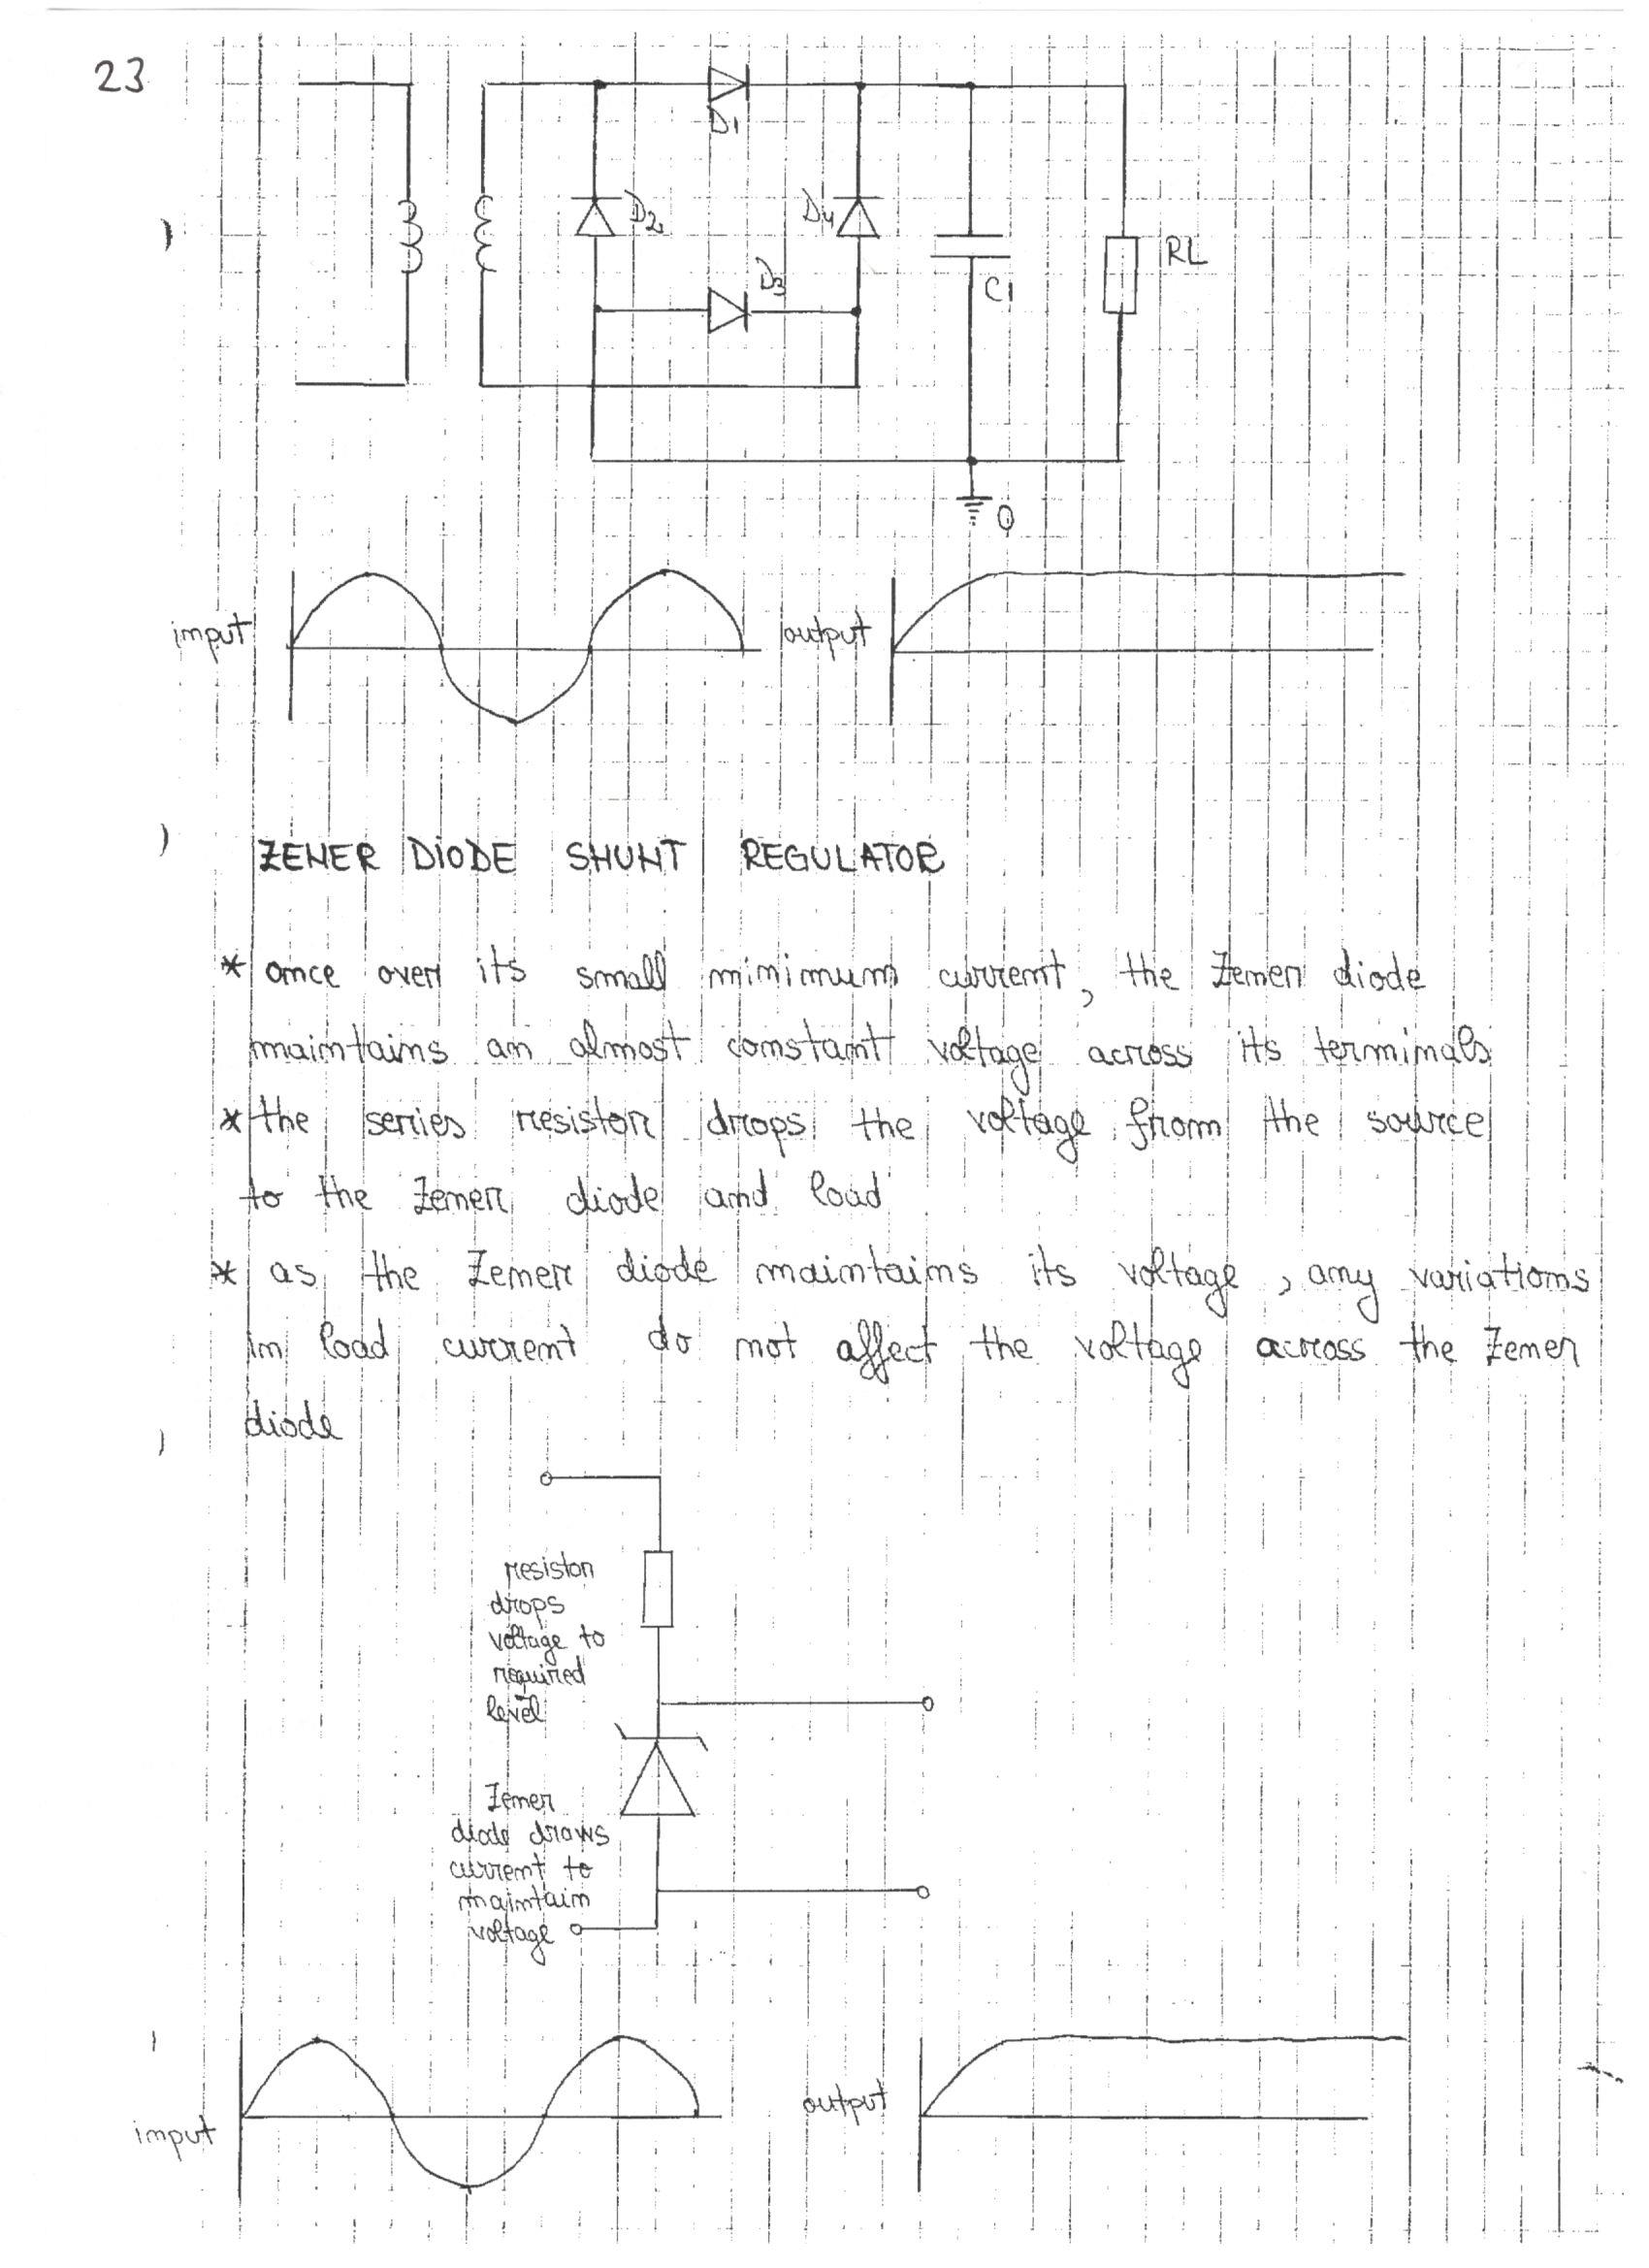 23
D1
D2
D4
D3
C1
RL
0
input
output
ZENER DIODE SHUNT REGULATOR
* once over its small minimum current, the Zener diode
maintains an almost constant voltage across its terminals
* the series resistor drops the voltage from the source
to the Zener diode and load
* as the Zener diode maintains its voltage, any variations
in load current do not affect the voltage across the Zener
diode
resistor
drops
voltage to
required
level
Zener
diode draws
current to
maintain
voltage
input
output